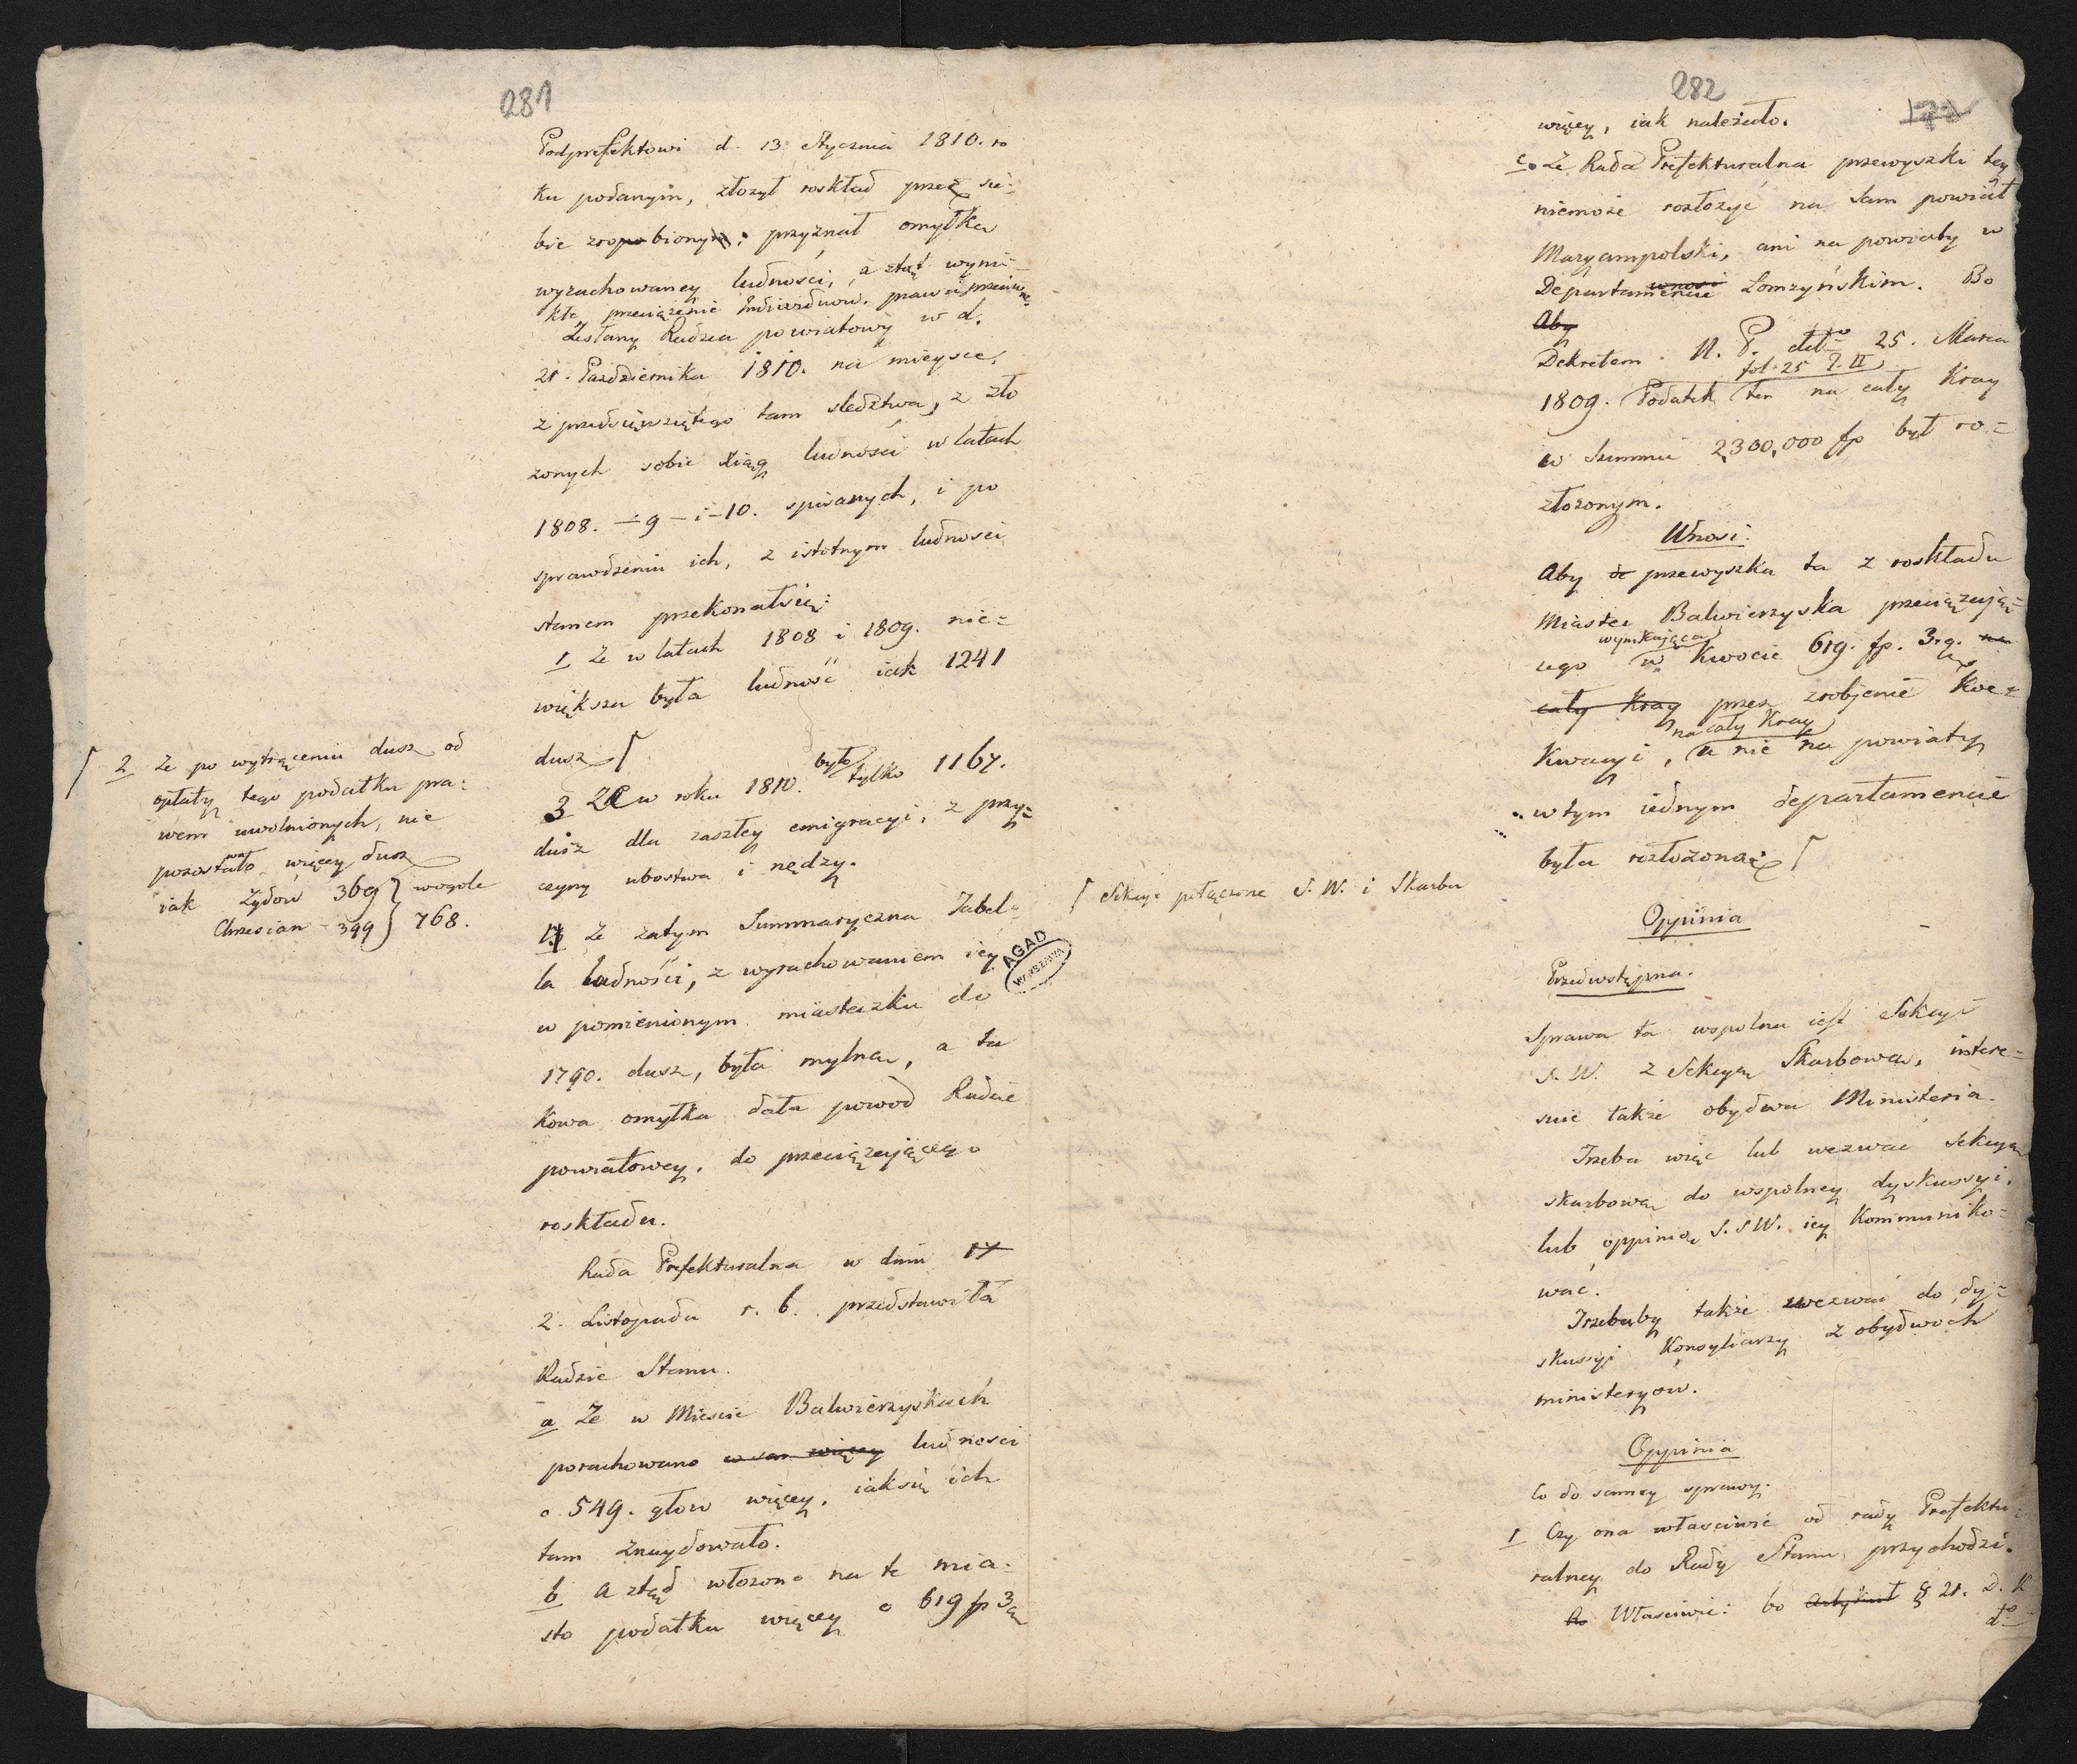 281
Podprefektowi d. 13 Stycznia 1810. ro
ku podanym, złozył roskład przez sie-
bie zrobiony: przyznał omyłkę
wyrachowaney ludności, a ztąd wyni-
kłe przeciążenie
Zesłany Radzca powiatowy w d.
21. Pazdziernika 1810. na mieysce,
z przedsięwziętego tam sledztwa, z zło
zonych sobie xiąg ludności w latach
1808. – 9 – i – 10. spisanych, i po
sprawdzeniu ich, z istotnym ludnosci
stanem przekonał się:
1 Ze w latach 1808 i 1809. nie-
większa była ludność iak 1241
dusz
⌈ 2 Ze po wytrąceniu dusz od
opłaty tego podatku pra-
wem uwolnionych, nie
pozostało więcey dusz
iak Zydow 369 } wogole
Chrzescian – 399 } 768.
3 Ze w roku 1810. było tylko 1167.
dusz dla zaszłey emigracyi, z przy-
czyny ubostwa i nędzy.
4 Ze zatym Summaryczna Tabel-
la ludności, z wyrachowaniem iey
w pomienionym miasteczku do
1790. dusz, była mylna, a ta
kowa omyłka dała powod Radzie
powiatowey, do przeciążaiącego
roskładu.
Rada Prefekturalna w dniu 17
2. Listopada r. b. przedstawiła
Radzie Stanu.
a Ze w Miescie Balwierzyskach
porachowano ludnosci
o 549. głow więcey, iak się ich
tam znaydowało.
b a ztąd włozono na te mia-
sto podatku więcey o 619 fp 3 gr
AGAD
WARSZAWA
282
więcey, iak należało.
c. Ze Rada Prefekturalna przewyszki tey
niemoze rozłozyć na sam powiat
Maryampolski, ani na powiaty w
Departamencie Lomzyńskim. Bo
Aby
Dekretem N. P. dtto 25. Marca
fol. 25 T. II
1809. Podatek ten na cały Kray
w Summie 2,300,000 fp był ro-
złozonym.
Wnosi.
Aby przewyszka ta z roskładu
Miasta Balwierzyska przeciązaią-
wynikaiąca
cego w kwocie 619. fp. 3. g.
cały Kray przez zrobienie Kwe-
na cały Kray
kwacyi, a nie na powiaty
w tym iednym departamencie
była rozłozoną ⌈
⌈ Sekcye połączone S. W. i Skarbu
Oppinia
Przedwstępna.
Sprawa ta wspolna iest Sekcyi
S. W. z Sekcyą Skarbową, intere-
suie także obydwa Ministeria.
Trzeba więc lub wezwać Sekcyą
skarbową do wspolney dyskussyi,
lub oppinią S. S W. iey kommuniko-
wać.
Trzebaby także wezwać do dy-
skussyi Konsyliarzy z obydwoch
ministeryow.
Oppinia
Co do samey sprawy.
1 Czy ona właściwie od rady Prefektu-
ralney do Rady Stanu przychodzi.
Właściwie: bo artykuł § 21. D. K
dto